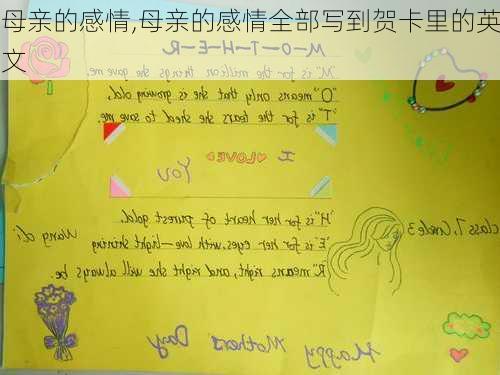 母亲的感情,母亲的感情全部写到贺卡里的英
文
M—O—T—H—E—R
"M" is for the million things she gave me.
"O" means only that she is growing old.
"T" is for the tears she shed to save me.
I LOVE
You
"H" is for her heart of purest gold.
"E" is for her eyes, with love-light shining
"R" means right, and right she will always be.
Wang di
Class 7, Grade 3
Happy Mothers Day